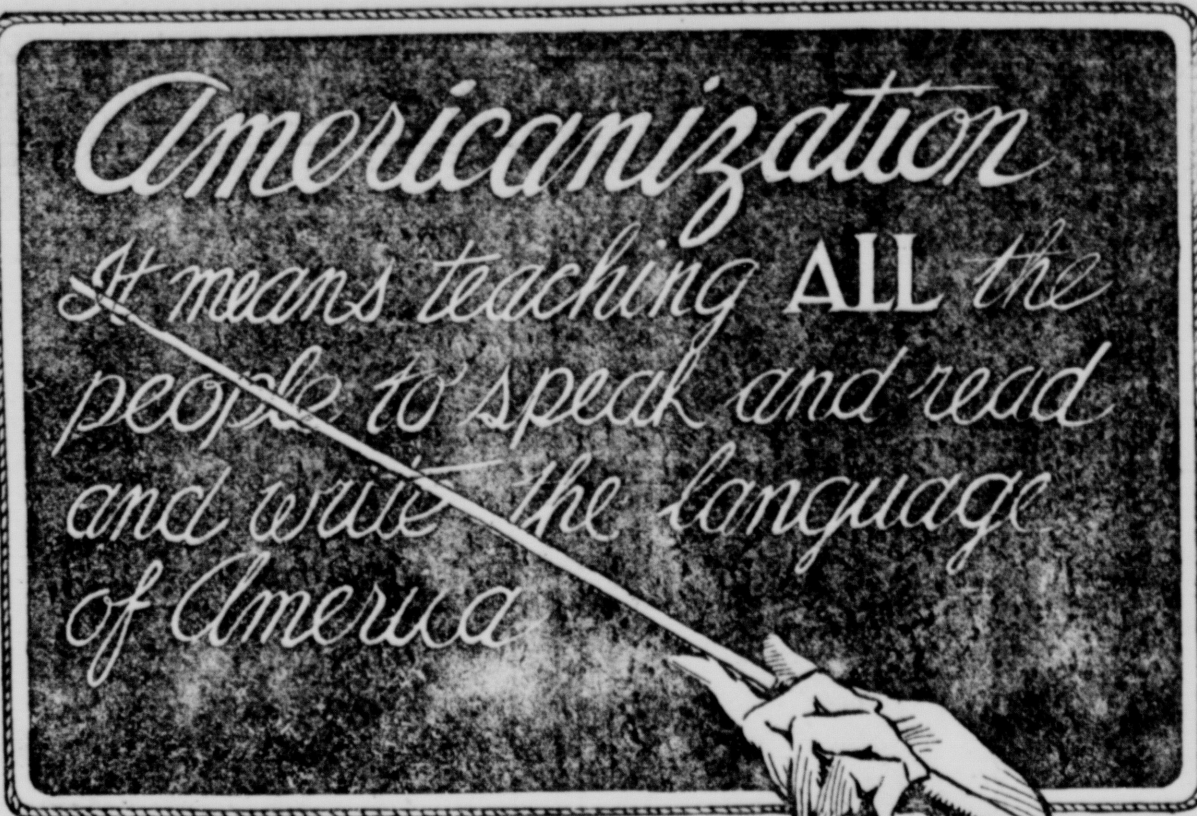 Americanization
It means teaching ALL the
people to speak and read
and write the language
of America